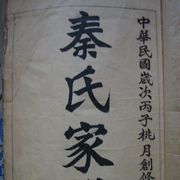 中華民國歲次丙子桃月創修
秦氏家